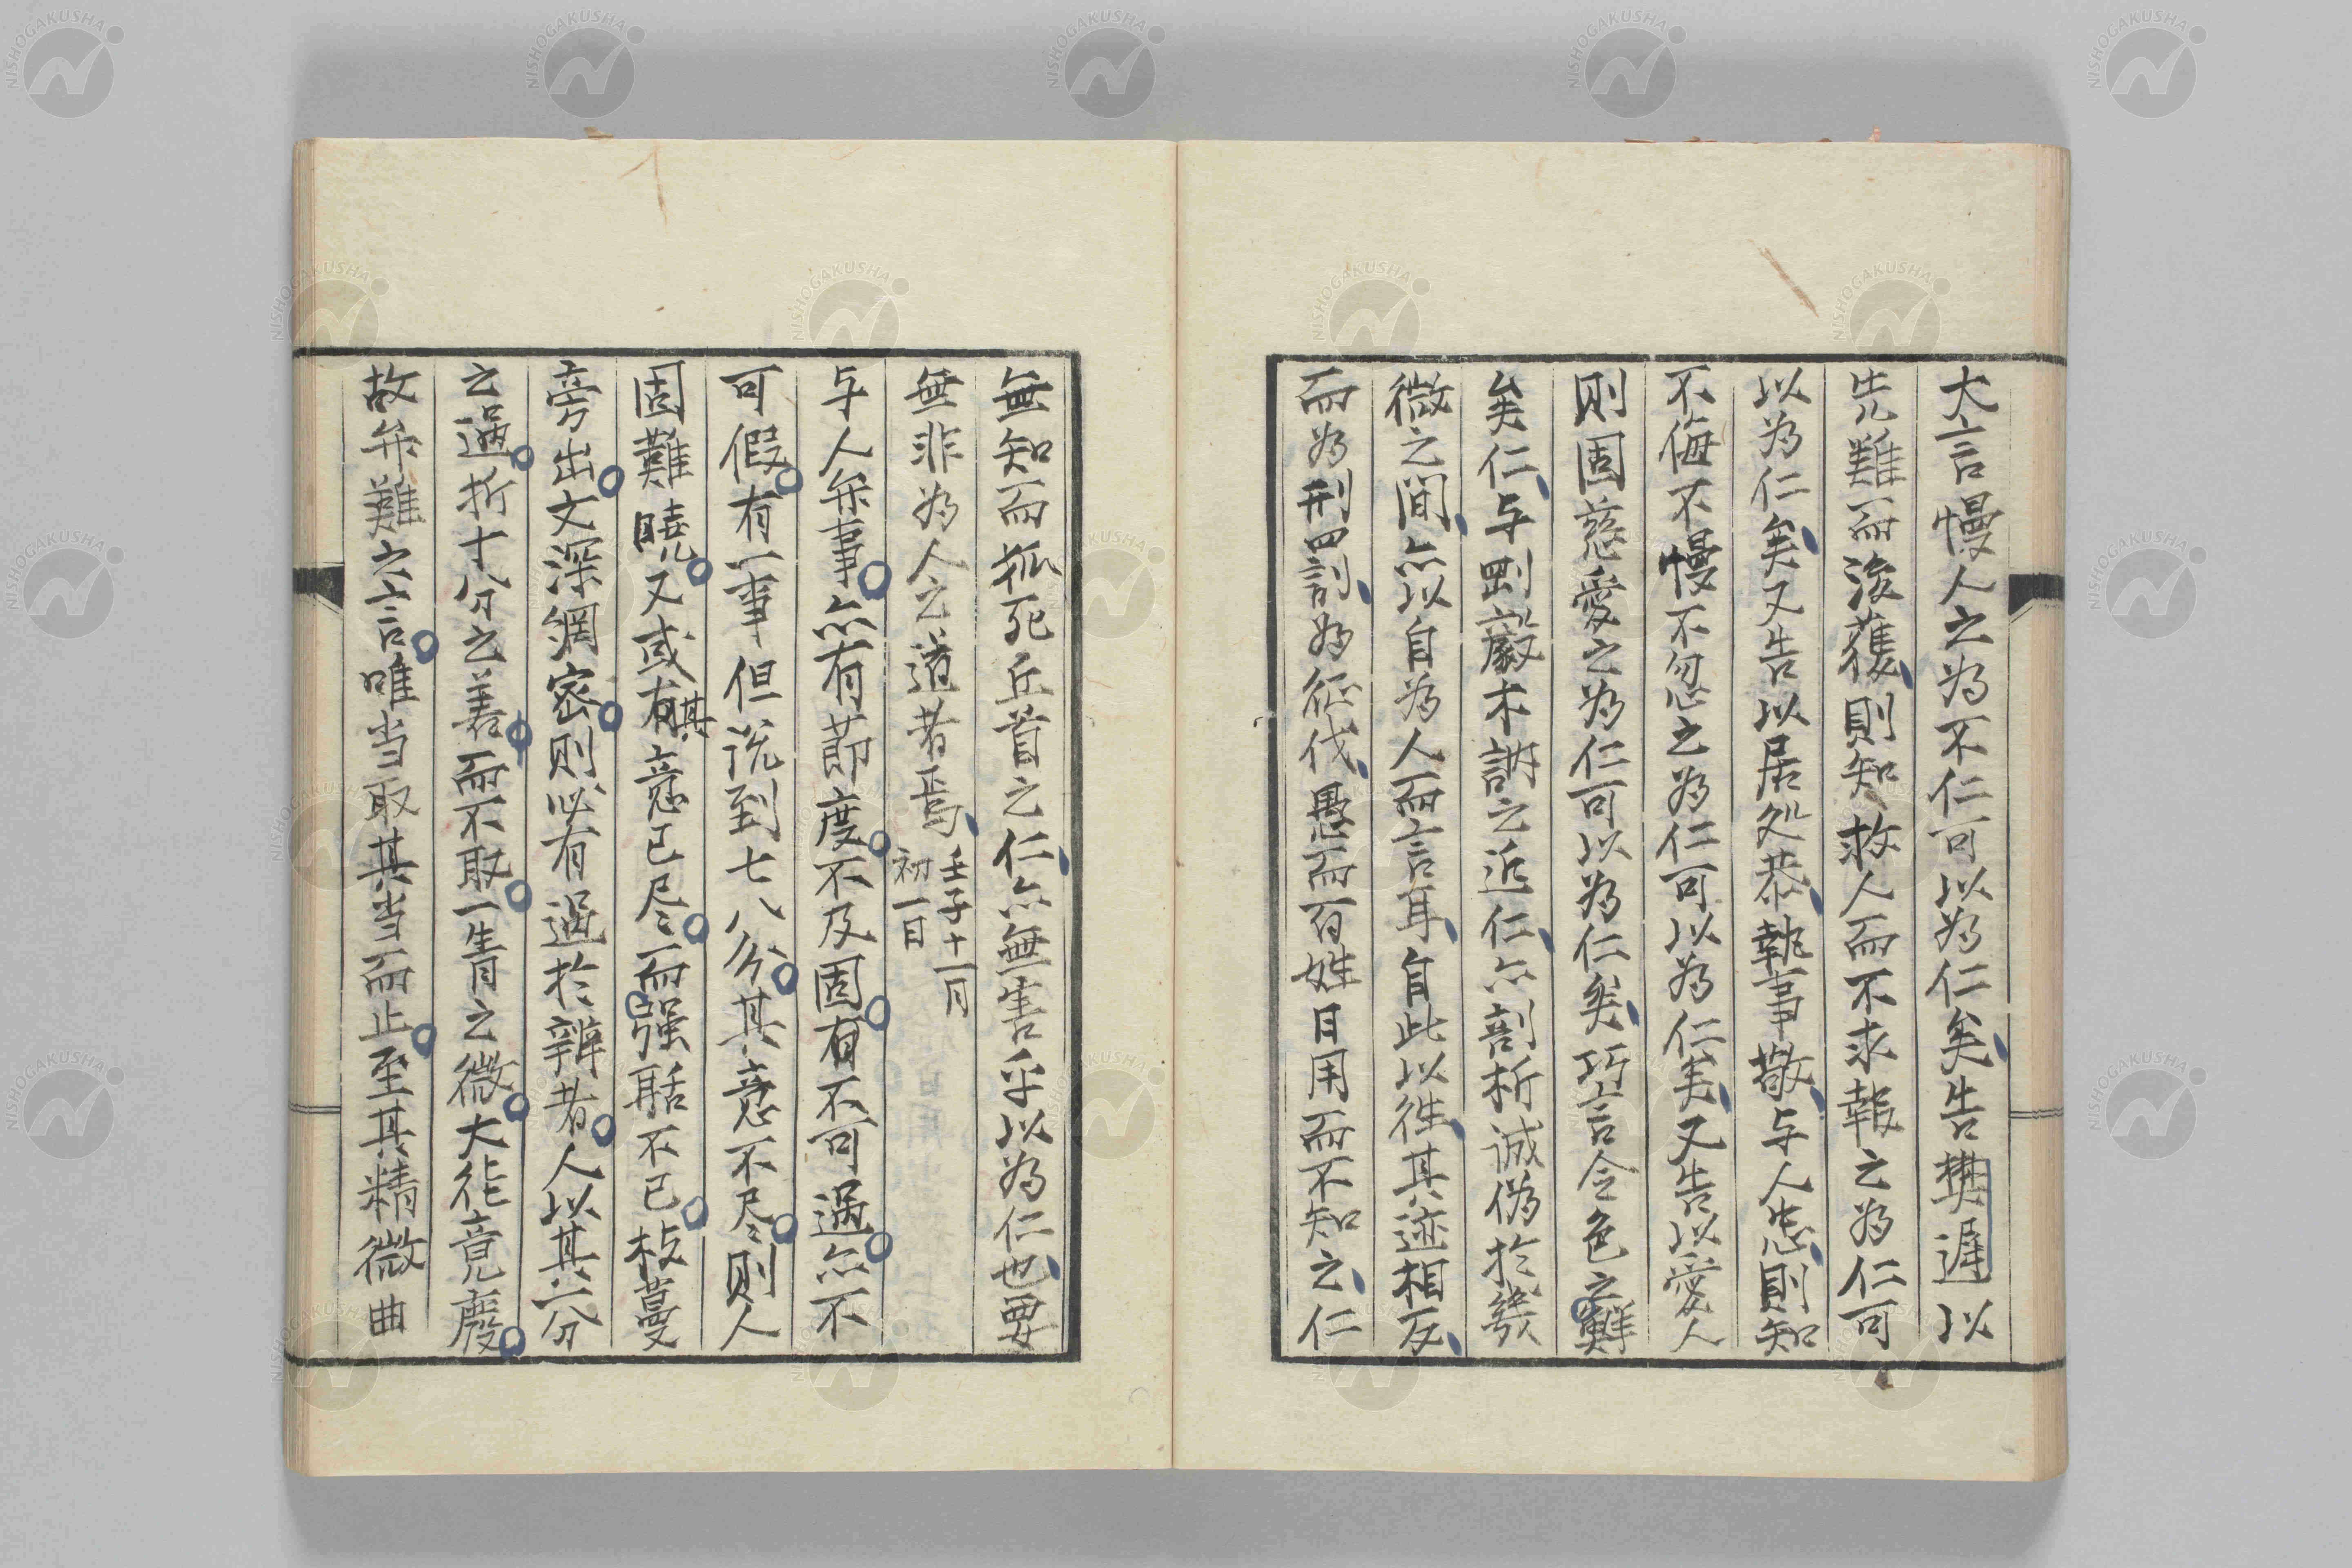 大言慢人之為不仁可以為仁矣告樊遅以
先難而後獲則知救人而不求報之為仁可
以為仁矣又告以居処恭執事敬与人忠則知
不侮不慢不忽之為仁可以為仁矣又告以愛人
則固慈愛之為仁可以為仁矣巧言令色之鮮
矣仁与剛毅木訥之近仁亦剖析誠偽於幾
微之間亦以自為人而言耳自此以往其迹相反
而為刑罰為征伐愚而百姓日用而不知之仁
無知而狐死丘首之仁亦無害乎以為仁也要
無非為人之道者焉
壬子十一月
初一日
与人弁事亦有節度不及固有不可過亦不
可假有一事但説到七八分其意不尽則人
固難曉又或有其意已尽而强聒不已枝蔓
旁出文深網密則必有過於辨者人以其二分
之過折十八分之善而不取一眚之微大徃竟廢
故弁難之言唯当取其当而止至其精微曲